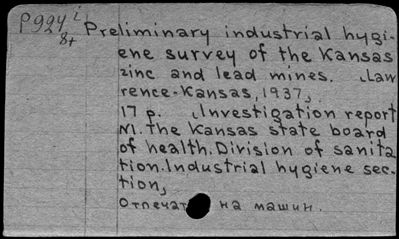 P924i Preliminary industrial hygi-
8+
ene survey of the Kansas
zinc and lead mines. Law
rence-Kansas, 1937,
17 p. (Investigation report
N1. The Kansas state board
of health. Division of sanita
tion. Industrial hygiene sec-
tion,
на машин.